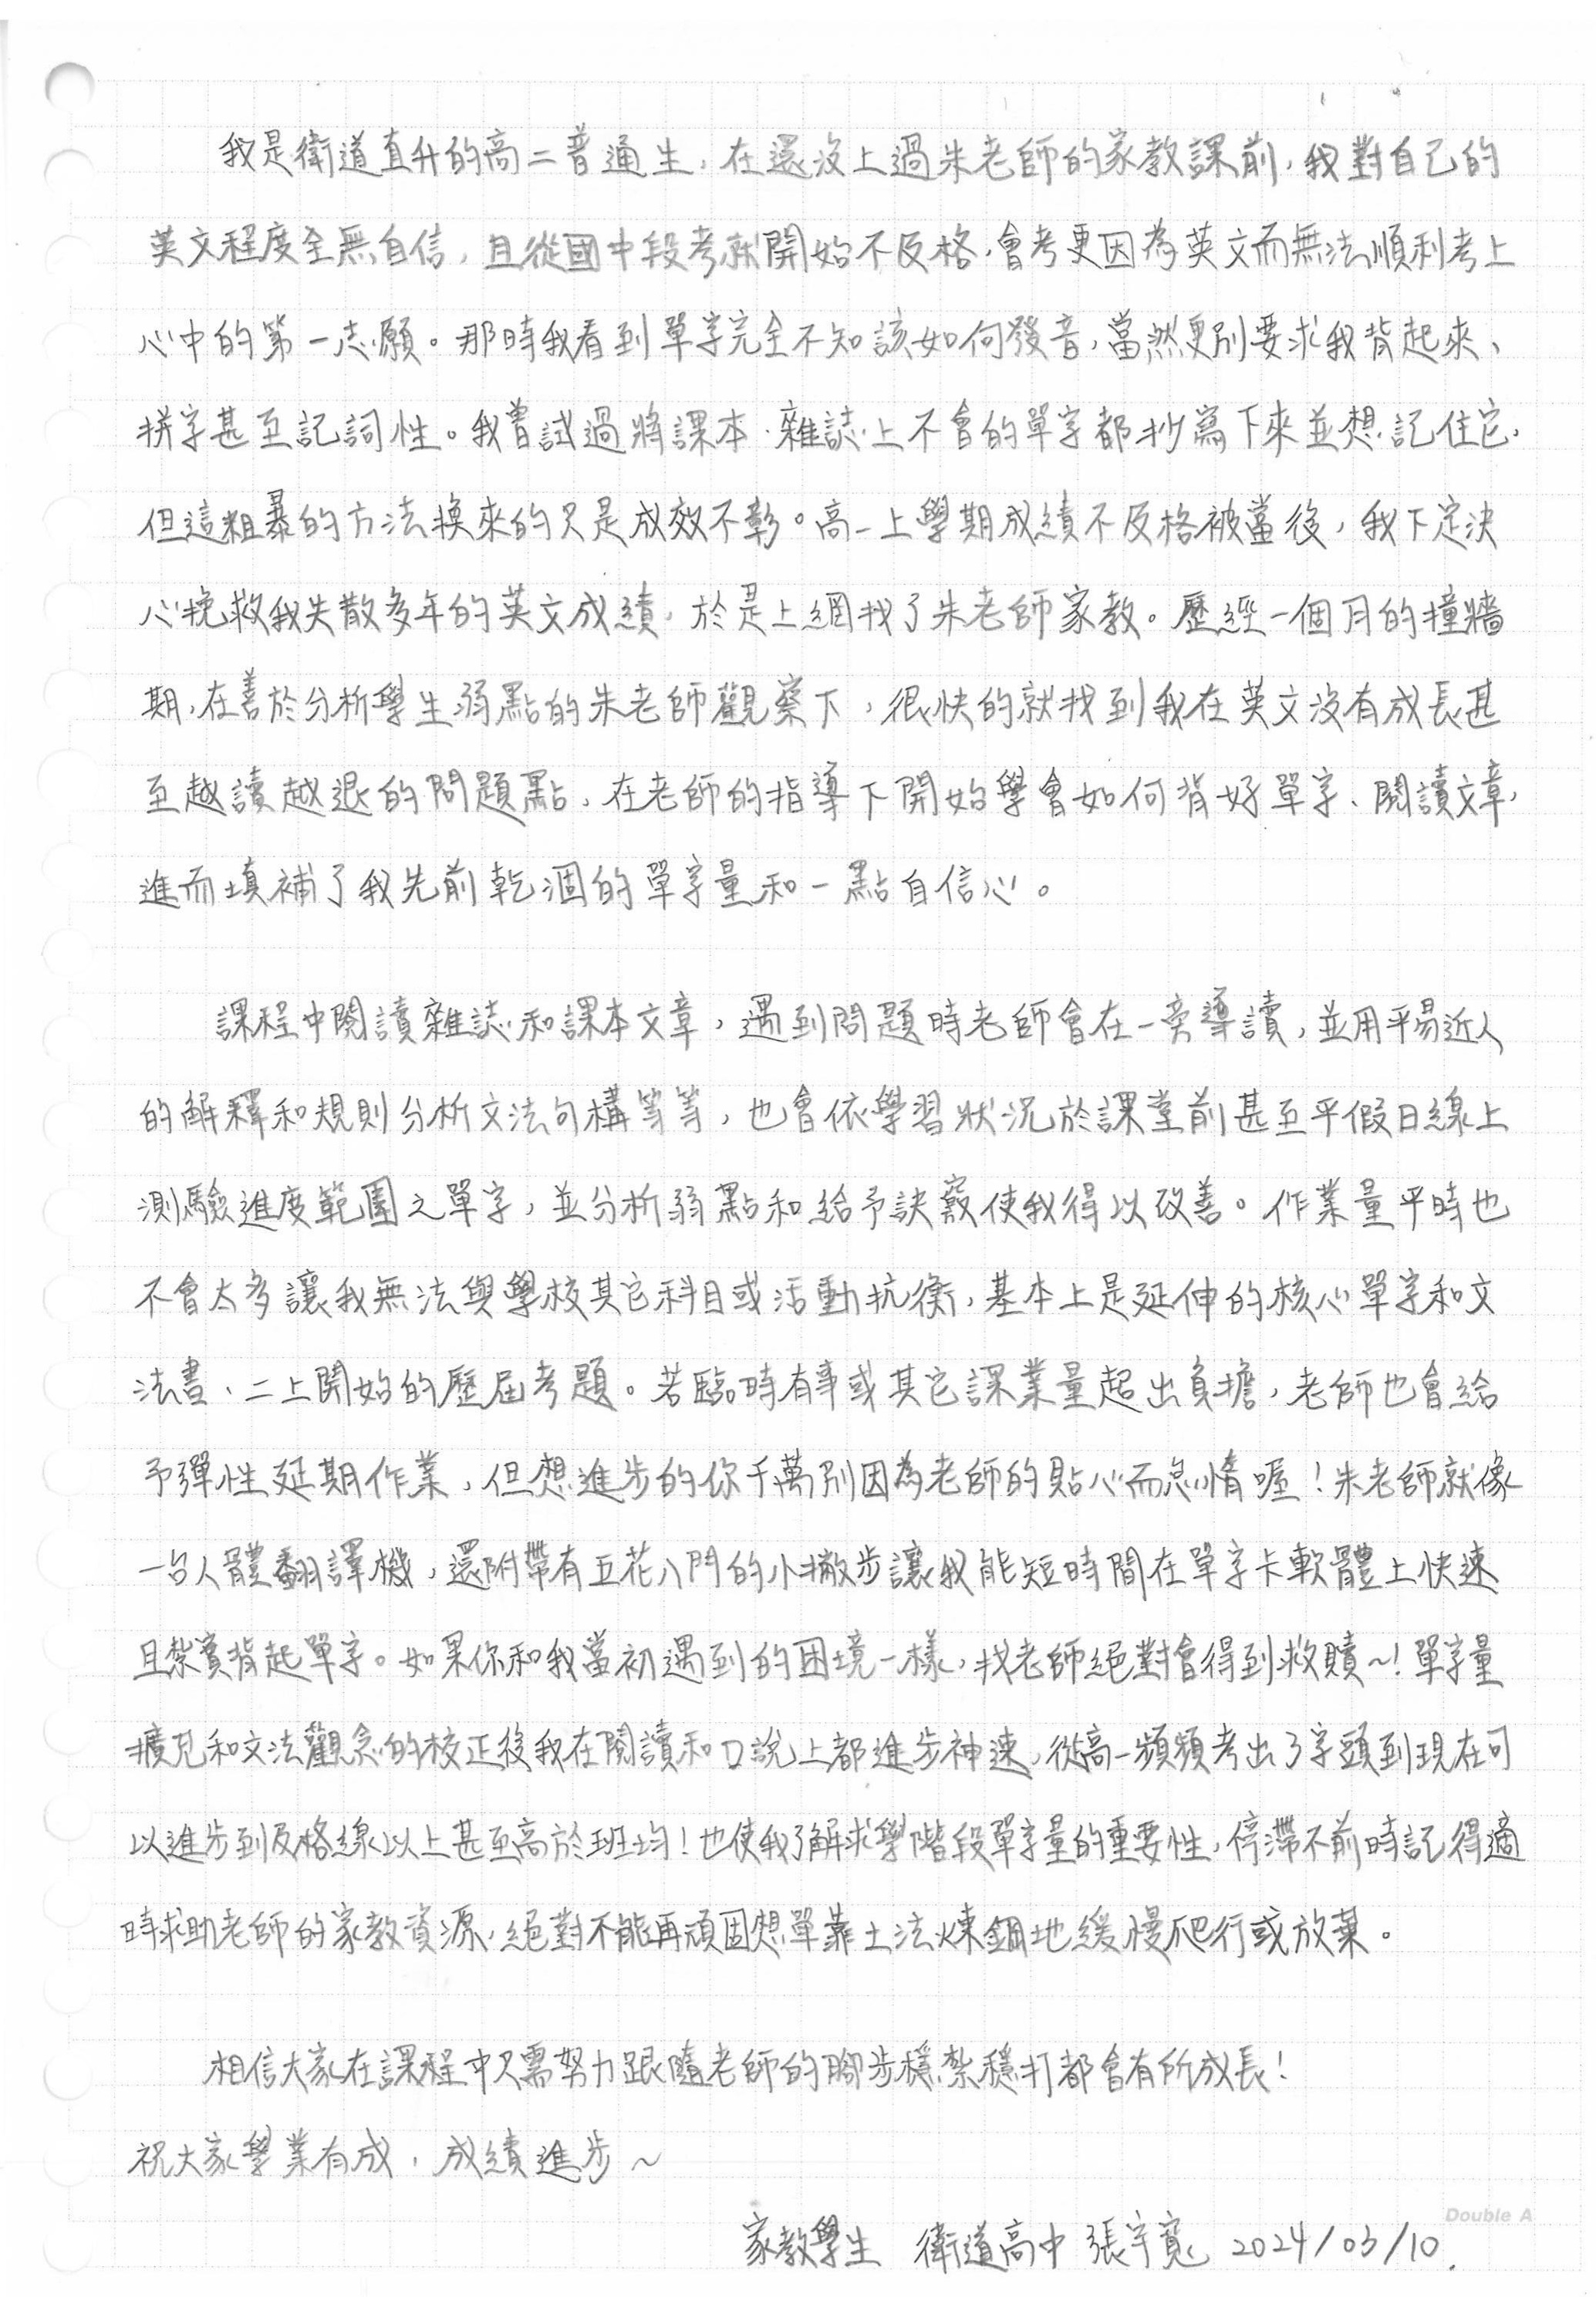 我是衛道直升的高二普通生，在還沒上過朱老師的家教課前，我對自己的
英文程度全無自信，且從國中段考就開始不及格，會考更因為英文而無法順利考上
心中的第一志願。那時我看到單字完全不知該如何發音，當然更別要求我背起來、
拼字甚至記詞性。我嘗試過將課本、雜誌上不會的單字都抄寫下來並想記住它，
但這粗暴的方法換來的只是成效不彰。高一上學期成績不及格被當後，我下定決
心挽救我失散多年的英文成績，於是上網找了朱老師家教。歷經一個月的撞牆
期，在善於分析學生弱點的朱老師觀察下，很快的就找到我在英文沒有成長甚
至越讀越退的問題點，在老師的指導下開始學會如何背好單字、閱讀文章，
進而填補了我先前乾涸的單字量和一點自信心。
課程中閱讀雜誌和課本文章，遇到問題時老師會在一旁導讀，並用平易近人
的解釋和規則分析文法句構等等，也會依學習狀況於課堂前甚至平假日線上
測驗進度範圍之單字，並分析弱點和給予訣竅使我得以改善。作業量平時也
不會太多讓我無法與學校其它科目或活動抗衡，基本上是延伸的核心單字和文
法書、二上開始的歷屆考題。若臨時有事或其它課業量超出負擔，老師也會給
予彈性延期作業，但想進步的你千萬別因為老師的貼心而怠惰喔！朱老師就像
一台人體翻譯機，還附帶有五花八門的小撇步讓我能短時間在單字卡軟體上快速
且紮實背起單字。如果你和我當初遇到的困境一樣，找老師絕對會得到救贖~！單字量
擴充和文法觀念的校正後我在閱讀和口說上都進步神速，從高一頻頻考出了字頭到現在可
以進步到及格線以上甚至高於班均！也使我了解求學階段單字量的重要性，停滯不前時記得適
時求助老師的家教資源，絕對不能再頑固想單靠土法煉鋼地緩慢爬行或放棄。
相信大家在課程中只需努力跟隨老師的腳步穩紮穩打都會有所成長！
祝大家學業有成，成績進步~
Double A
家教學生 衛道高中 張宇寬 2024/03/10.